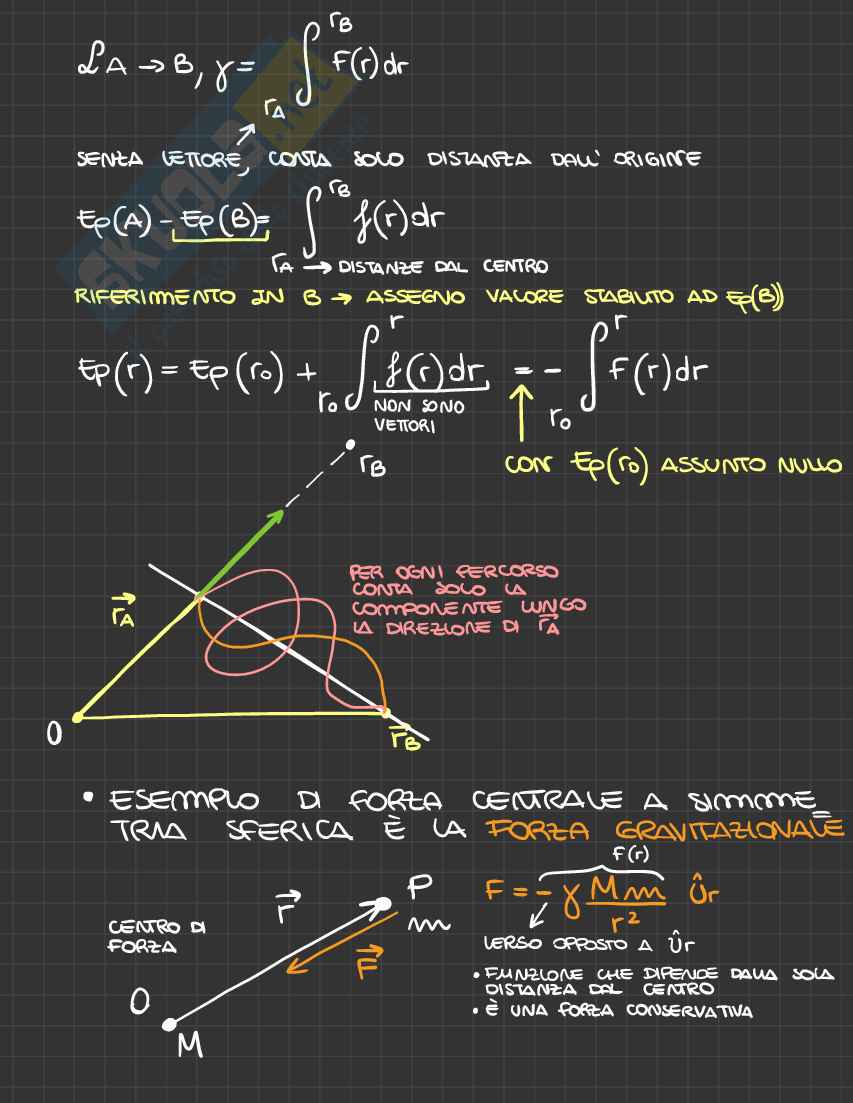 ℒA → B, γ = ∫_{rA}^{rB} F(r)dr
SENZA VETTORE, CONTA SOLO DISTANZA DALL' ORIGINE
Ep(A) - Ep(B) = ∫_{rA}^{rB} f(r)dr
→ DISTANZE DAL CENTRO
RIFERIMENTO IN B → ASSEGNO VALORE STABILITO AD Ep(B)
Ep(r) = Ep(r₀) + ∫_{r₀}^{r} f(r)dr = - ∫_{r₀}^{r} F(r)dr
NON SONO
VETTORI
CON Ep(r₀) ASSUNTO NULLO
rB
PER OGNI PERCORSO
CONTA SOLO LA
COMPONENTE LUNGO
LA DIREZIONE DI r⃗A
r⃗A
O
r⃗B
• ESEMPIO DI FORZA CENTRALE A SIMME=
TRIA SFERICA È LA FORZA GRAVITAZIONALE
F(r)
F = - γ Mm/r² Ûr
VERSO OPPOSTO A Ûr
• FUNZIONE CHE DIPENDE DALLA SOLA
DISTANZA DAL CENTRO
• È UNA FORZA CONSERVATIVA
P
m
r⃗
F⃗
CENTRO DI
FORZA
O
M
SKUOLA.net